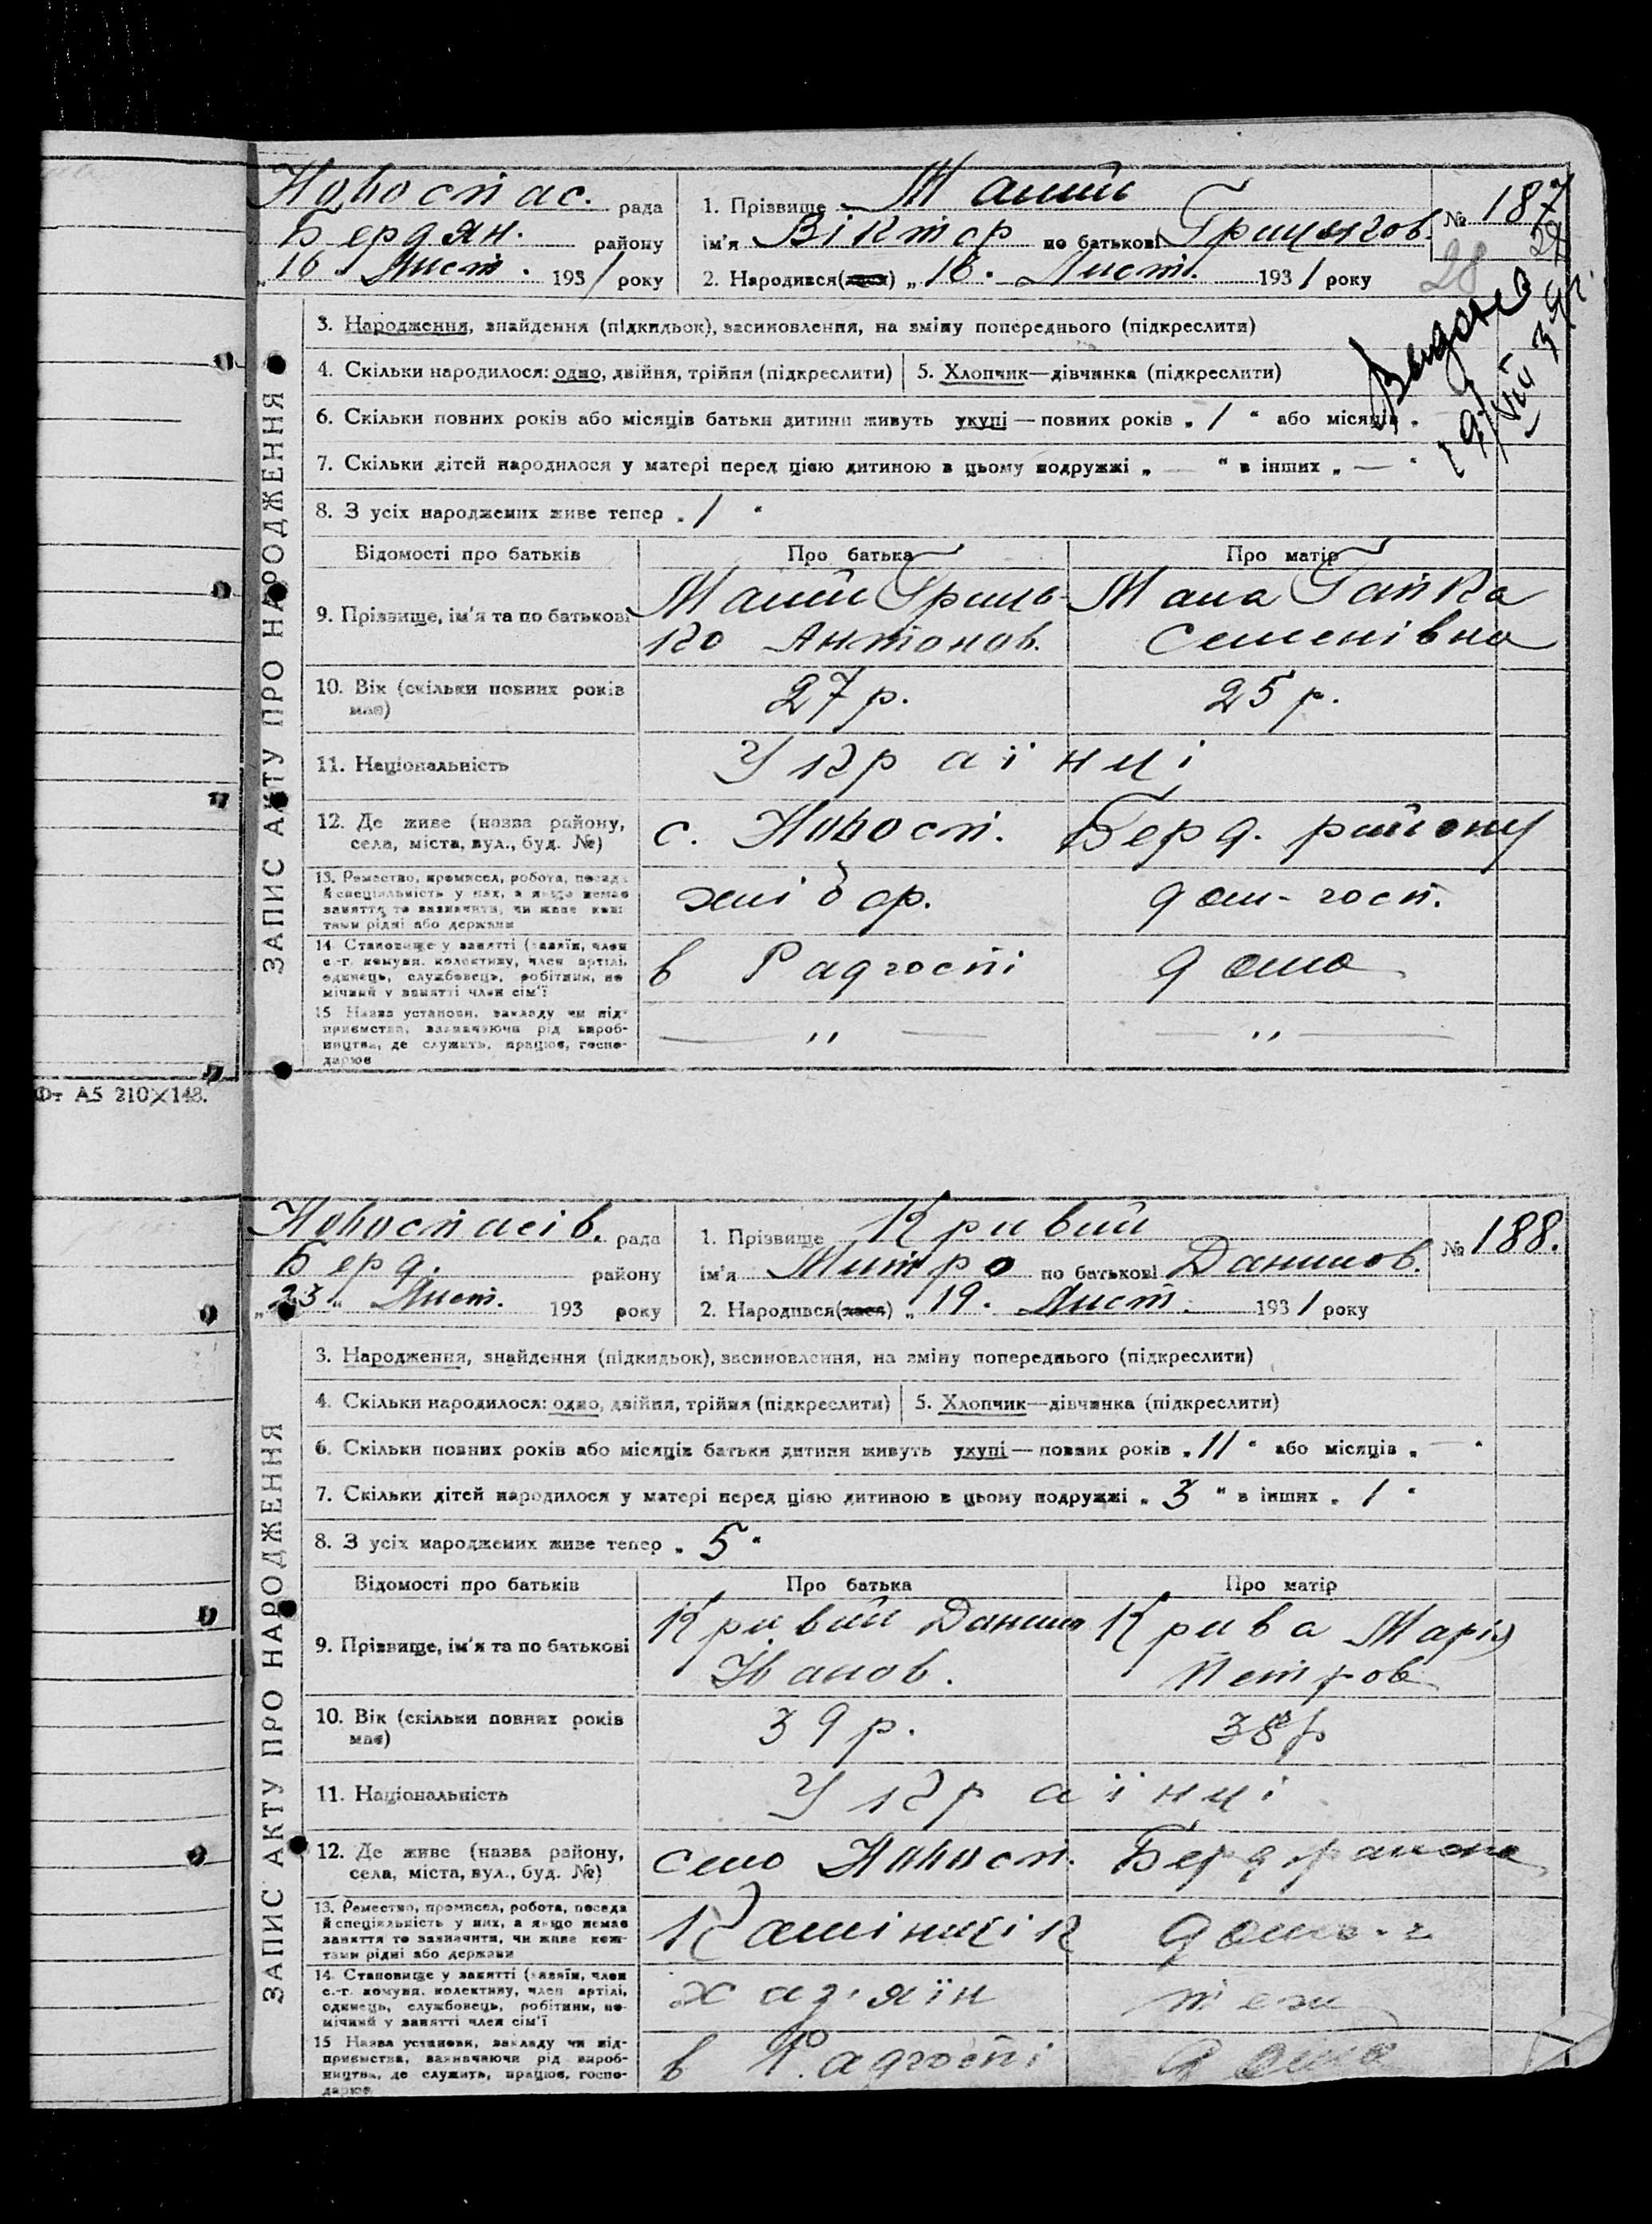 Новоспас. рада
Бердян. району
„16„ Лист. 1931 року
1. Прізвище Маний
ім'я Віктор по батькові Грицьков.
2. Народився(лася) „16. Лист. 1931 року
№ 187
28
Видано
ЗАПИС АКТУ ПРО НАРОДЖЕННЯ
3. Народження, знайдення (підкидьок), засиновлення, на зміну попереднього (підкреслити)
4. Скільки народилося: одно, двійня, трійня (підкреслити) 5. Хлопчик—дівчинка (підкреслити)
6. Скільки повних років або місяців батьки дитини живуть укупі — повних років „ 1 “ або місяців „
7. Скільки дітей народилося у матері перед цією дитиною в цьому подружжі „ — “ в інших „ — “
8. З усіх народжених живе тепер „ 1 “
Відомості про батьків Про батька Про матір
9. Прізвище, ім'я та по батькові Маний Гриць- Мана Гапка
ко Антонов. Семенівна
10. Вік (скільки повних років 27 р. 25 р.
має)
11. Національність Українці
12. Де живе (назва району, с. Новосп. Берд. району
села, міста, вул., буд. №)
13. Ремество, промисел, робота, посада хлібор. дом-госп.
й спеціяльність у них, а якщо немає
заняття то зазначити, чи живе кош-
тами рідні або держави
14. Становище у занятті (хазяїн, член в Радгоспі дома
с.-г. комуни, колективу, член артілі,
одинець, службовець, робітник, по-
мічний у занятті член сім'ї
15 Назва установи, закладу чи під- — „ — — „ —
приємства, зазначаючи рід вироб-
ництва, де служить, працює, госпо-
дарює
Фт А5 210×148.
Новоспасів. рада
Берд. району
„23„ Лист. 193 року
1. Прізвище Кривий
ім'я Митро по батькові Данилов.
2. Народився(лася) „19. Лист. 1931 року
№ 188.
ЗАПИС АКТУ ПРО НАРОДЖЕННЯ
3. Народження, знайдення (підкидьок), засиновлення, на зміну попереднього (підкреслити)
4. Скільки народилося: одно, двійня, трійня (підкреслити) 5. Хлопчик—дівчинка (підкреслити)
6. Скільки повних років або місяців батьки дитини живуть укупі — повних років „ 11 “ або місяців „ — “
7. Скільки дітей народилося у матері перед цією дитиною в цьому подружжі „ 3 “ в інших „ 1 “
8. З усіх народжених живе тепер „ 5 “
Відомості про батьків Про батька Про матір
9. Прізвище, ім'я та по батькові Кривий Данило Крива Марія
Іванов. Петров
10. Вік (скільки повних років 39 р. 38 р
має)
11. Національність Українці
12. Де живе (назва району, село Новосп. Берд району
села, міста, вул., буд. №)
13. Ремество, промисел, робота, посада Камінщік дом.-г
й спеціяльність у них, а якщо немає
заняття то зазначити, чи живе кош-
тами рідні або держави
14. Становище у занятті (хазяїн, член хаз'яїн теж
с.-г. комуни, колективу, член артілі,
одинець, службовець, робітник, по-
мічний у занятті член сім'ї
15 Назва установи, закладу чи під- в Радгоспі дома
приємства, зазначаючи рід вироб-
ництва, де служить, працює, госпо-
дарює